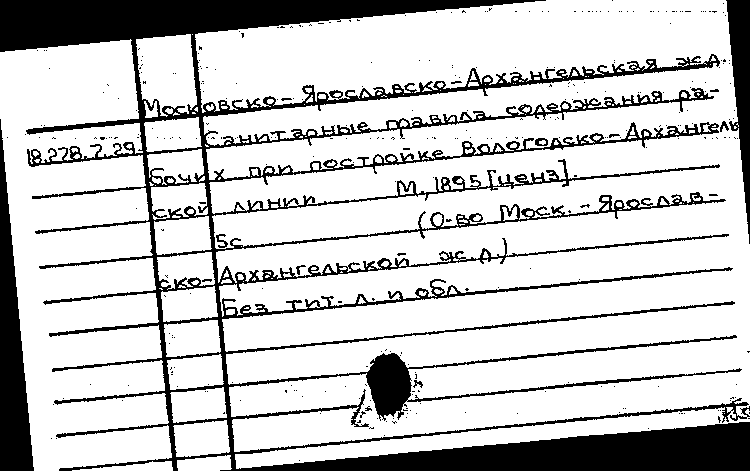 Московско-Ярославско-Архангельская ж.д.
18.278.7.29. Санитарные правила содержания ра-
бочих при постройке Вологодско-Архангель
ской линии. М., 1895 [ценз].
5с. (О-во Моск.-Ярослав-
ско-Архангельской ж.д.).
Без тит. л. и обл.